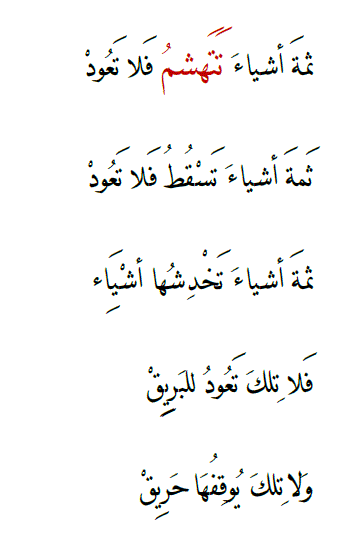 ثمةَ أشياءَ تَتَهشمُ فَلا تَعُودْ
ثَمةَ أشياءَ تَسْقُطُ فَلا تَعُودْ
ثمةَ أشياءَ تَخْدِشُها أشْيَاِء
فَلا تِلكَ تَعُودُ للبَرِيِقْ
وَلا تِلكَ يُوقِفُهَا حَرِيِقْ